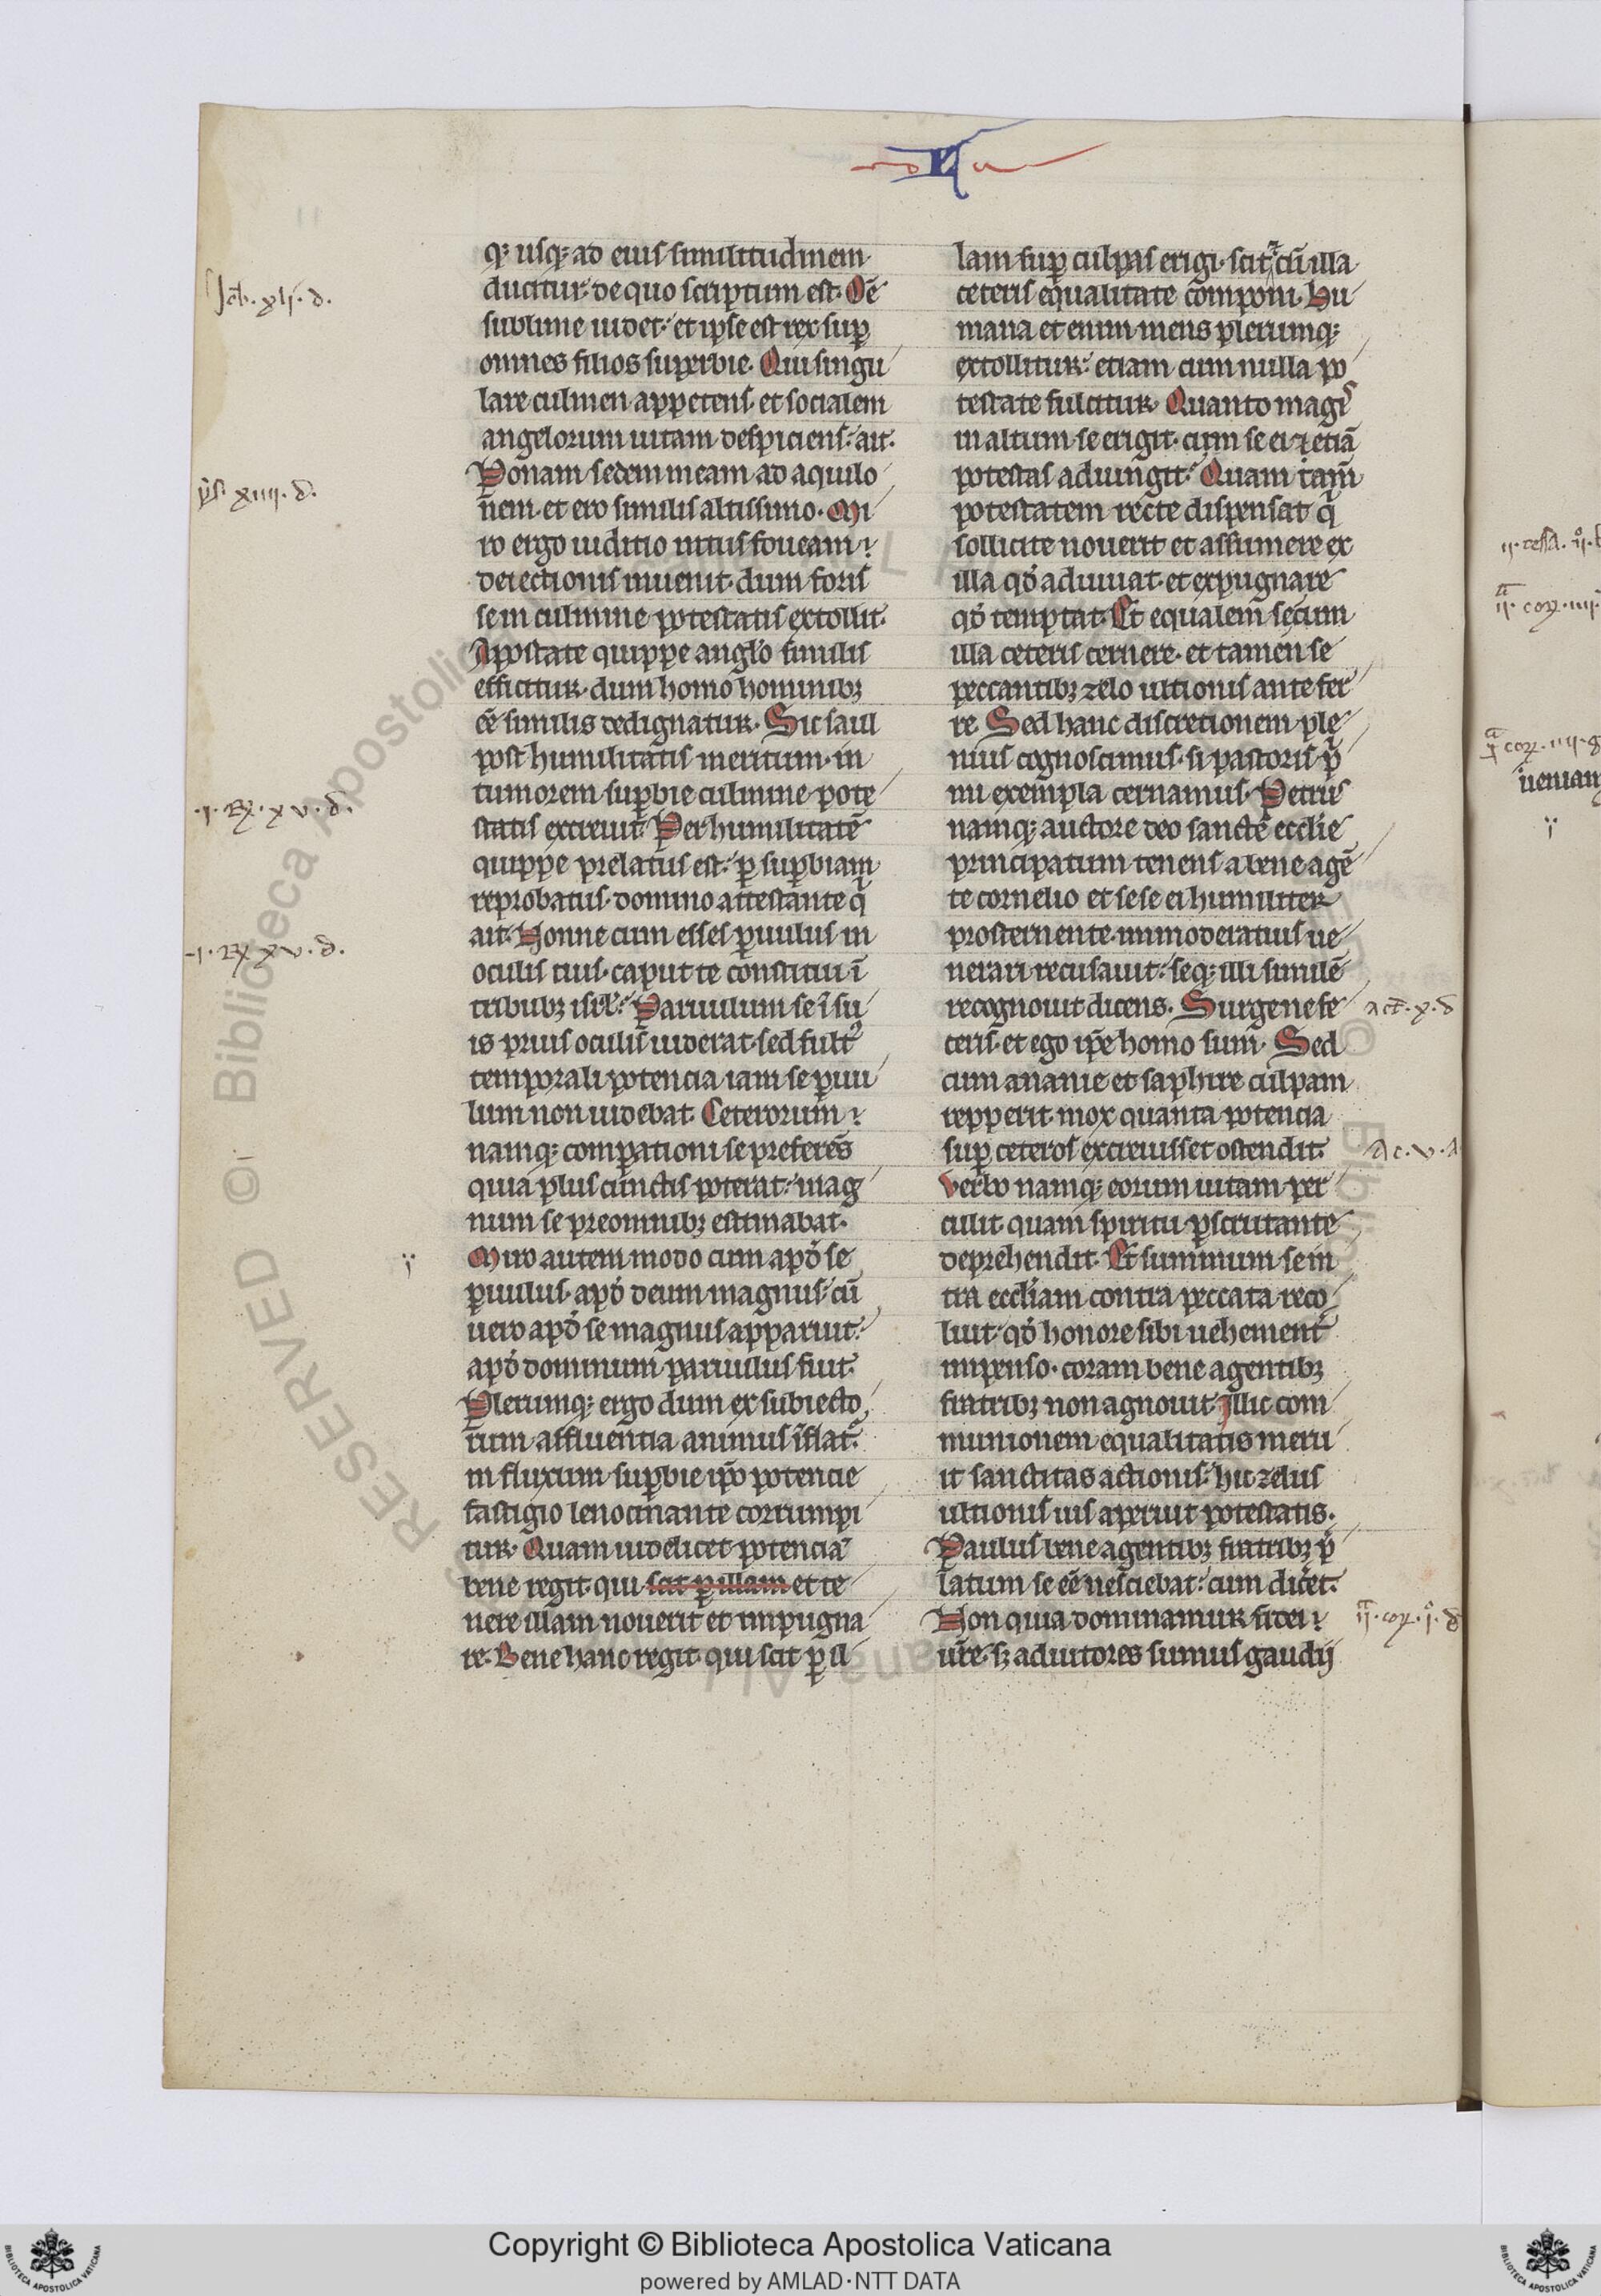 II
qꝫ usqꝫ ad eius similitudinem
ducitur· de quo scriptum est· Om̅e
sublime uidet· et ipse est rex sup̱
omnes filios superbie. Qui singu
lare culmen appetens· et socialem
angelorum uitam despiciens· ait·
Ponam sedem meam ad aquilo
nem· et ero similis altissimo· Mi
ro ergo iuditio intus foueam
deiectionis inuenit· dum foris
se in culmine potestatis extollit·
Apostate quippe anglo similis
efficitur· dum homo hominibꝫ
ee̅ similis dedignatur· Sic saul
post humilitatis meritum· in
tumorem sup̱bie culmine pote
statis excreuit· Per humilitate̅
quippe prelatus est· p̱ sup̱biam
reprobatus· domino attestante qͥ
ait· Nonne cum esses p̱uulus in
oculis tuis· caput te constitui i̅
tribubꝫ isrl̅· Paruulum se i̅ su
is prius oculis uiderat· sed fultꝰ
temporali potencia iam se p̱uu
lum non uidebat· Ceterorum
namqꝫ comp̱ationi se preferens
quia plus cunctis poterat· mag
num se pre omnibꝫ estimabat·
Miro autem modo cum apd̕ se
p̱uulus· apd̕ deum magnus· cu̅
uero apd̕ se magnus apparuit·
apd̕ dominum paruulus fuit·
Plerumqꝫ ergo dum ex subiecto
rum affluentia animus i̅flat᷑·
in fluxum sup̱bie ip̅o potencie
fastigio lenocinante corrumpi
tur· Quam uidelicet potencia̅
bene regit· qui scit p̱ illam et te
nere illam nouerit et inpugna
re· Bene hanc regit· qui scit p̱ il
lam sup̱ culpas erigi· scit ⁊ cu̅ illa
ceteris equalitate componi· Hu
mana et enim mens plerumqꝫ
extollitur· etiam cum nulla po
testate fulcitur· Quanto magis
in altum se erigit· cum se ei ⁊ etia̅
potestas adiungit· Quam tam̅
potestatem recte dispensat qͥ
sollicite nouerit et assumere ex
illa qd̕ adiuuat· et expugnare
qd̕ temptat· Et equalem secum
illa ceteris cernere· et tamen se
peccantibꝫ zelo ultionis ante fer
re· Sed hanc discretionem ple
nius cognoscimus· si pastoris pͥ
mi exempla cernamus· Petrus
namqꝫ auctore deo sancte eccl̅ie
principatum tenens a bene age̅
te cornelio et sese ei humiliter
prosternente· inmoderatius ue
nerari recusauit· seqꝫ illi simile̅
recognouit dicens· Surge ne fe
ceris· et ego ip̅e homo sum· Sed
cum ananie et saphire culpam
repperit· mox quanta potencia
sup̱ ceteros excreuisset ostendit·
Verbo namqꝫ eorum uitam per
culit· quam spiritu p̱scrutante
deprehendit· Et summum se in
tra eccl̅iam contra peccata reco
luit· qd̕ honore sibi uehement᷑
inpenso· coram bene agentibꝫ
fratribꝫ non agnouit· Illic com
munionem equalitatis meru
it sanctitas actionis· hic zelus
ultionis ius aperuit potestatis·
Paulus bene agentibꝫ fratribꝫ p̅
latum se ee̅ nesciebat· cum dicet᷑·
Non quia dominamur fidei
ur̅e· sꝫ adiutores sumus gaudij
Job· xli· d·
ys· xiiii· d·
·i· Rꝫ· xv· d·
·i· Rꝫ xv· d·
act̅· x· d
Ac· v· a
ii· cor· i· d
ueniam
Copyright © Biblioteca Apostolica Vaticana
powered by AMLAD·NTT DATA